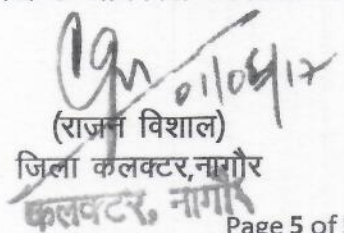 01/06/17
(राजन विशाल)
जिला कलक्टर,नागौर
कलक्टर, नागौर
Page 5 of